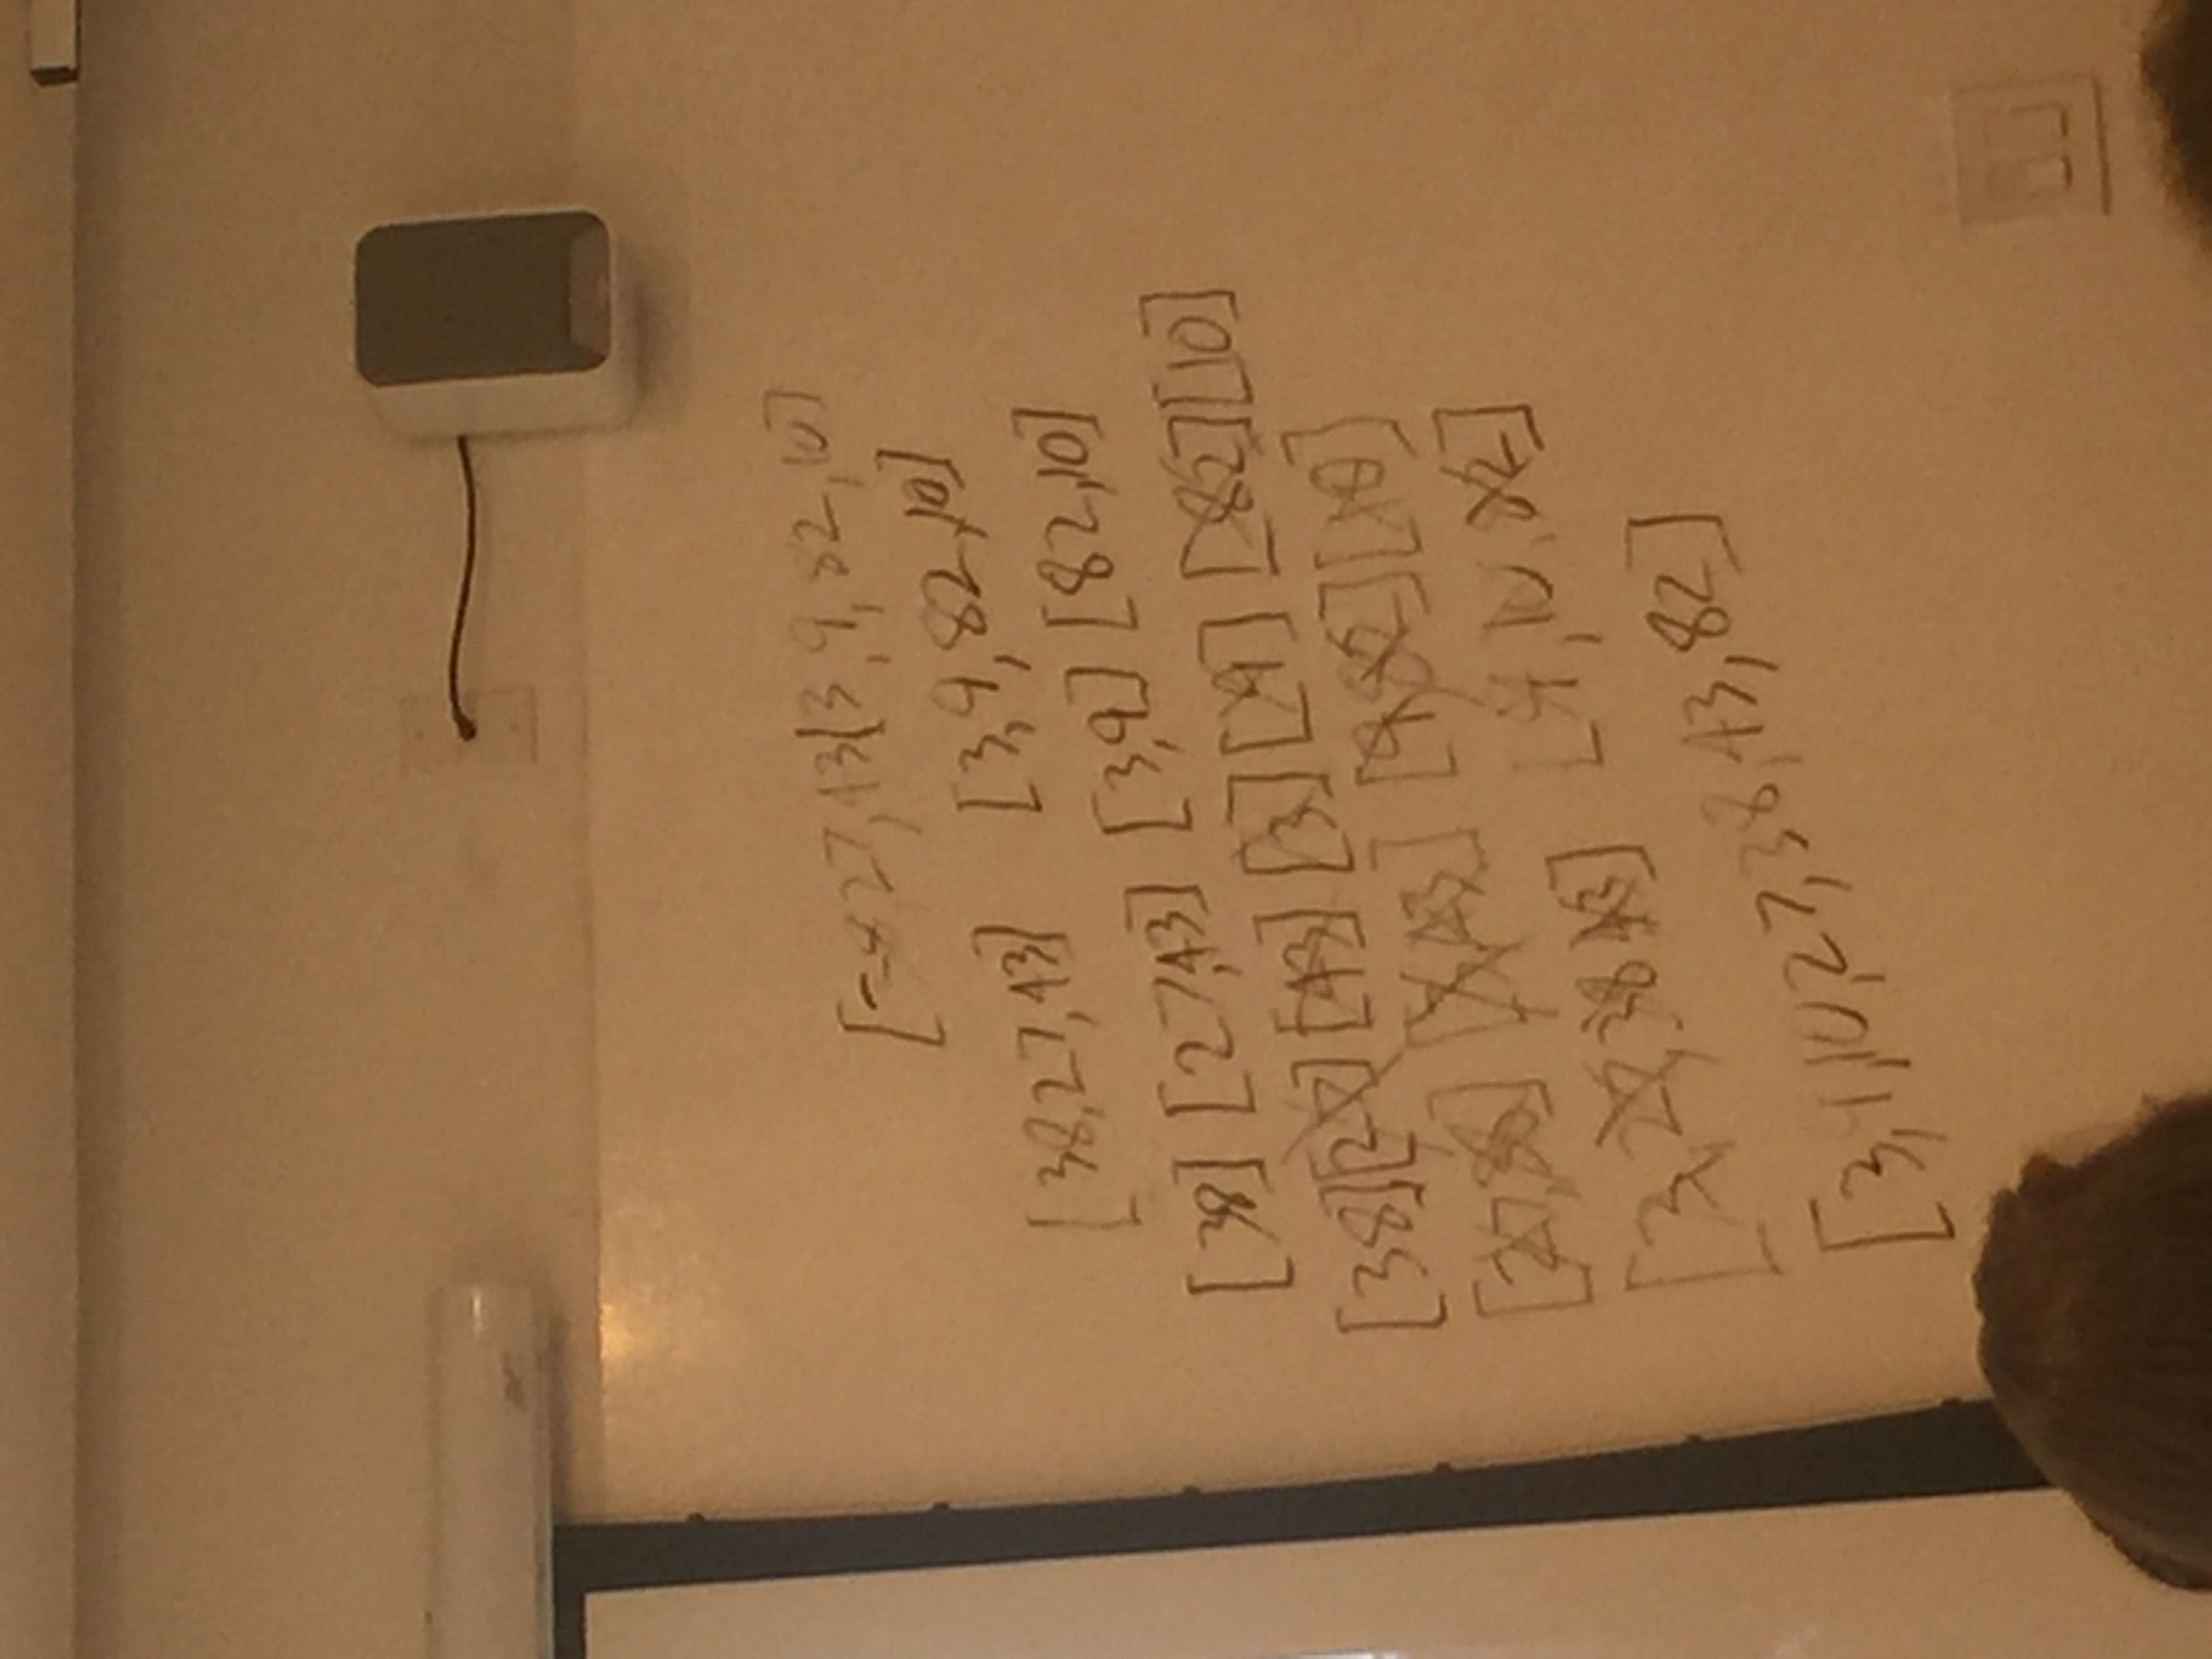 [ 27, 43 | 3, 9, 82, 10]
[38, 27, 43] [3, 9, 82, 10]
[38] [27, 43] [3, 9] [82, 10]
[38] [27] [43] [3] [9] [82] [10]
[27, 38] [3, 43] [9, 82] [10]
[3, 27, 38 43] [9, 10, 82]
[3, 9, 10, 27, 38, 43, 82]